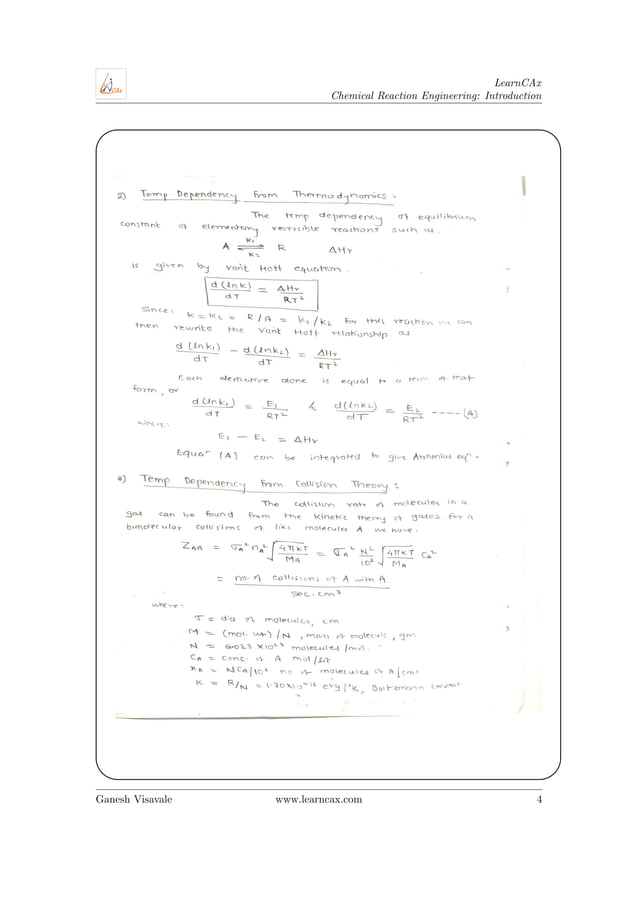 LearnCAx
Chemical Reaction Engineering: Introduction
2) Temp Dependency From Thermodynamics :-
The temp dependency of equilibrium
constant of elementary reversible reactions such as.
A ⇌ R ΔHr
K1
K2
is given by vant Hoff equation.
d (lnk) / dT = ΔHr / RT²
Since: K = Kc = R/A = K1/K2 For this reaction we can
then rewrite the Vant Hoff relationship as
d (lnk1) / dT - d (lnk2) / dT = ΔHr / RT²
Each derivative alone is equal to a term of that
form, or
d (lnk1) / dT = E1 / RT² & d (lnk2) / dT = E2 / RT² ---- (A)
where:
E1 - E2 = ΔHr
Equaⁿ (A) can be integrated to give Arrhenius eqⁿ.
Temp Dependency From Collision Theory :
The collision rate of molecules in a
gas can be found from the kinetic theory of gases. For a
bimolecular collisions of like molecules A we have.
Z_AA = σ_A² n_A² √(4πKT / M_A) = σ_A² N² / 10⁶ √(4πKT / M_A) C_A²
= no. of collisions of A with A / sec. cm³
where:
σ = dia of molecules, cm
M = (mol. wt) / N , mass of molecule, gm
N = 6.023 × 10²³ molecules / mol.
C_A = conc. of A mol / lit
n_A = N C_A / 10³ no of molecules of A / cm³
K = R/N = 1.30 × 10⁻¹⁶ erg / °K, Boltzmann constant
Ganesh Visavale www.learncax.com 4